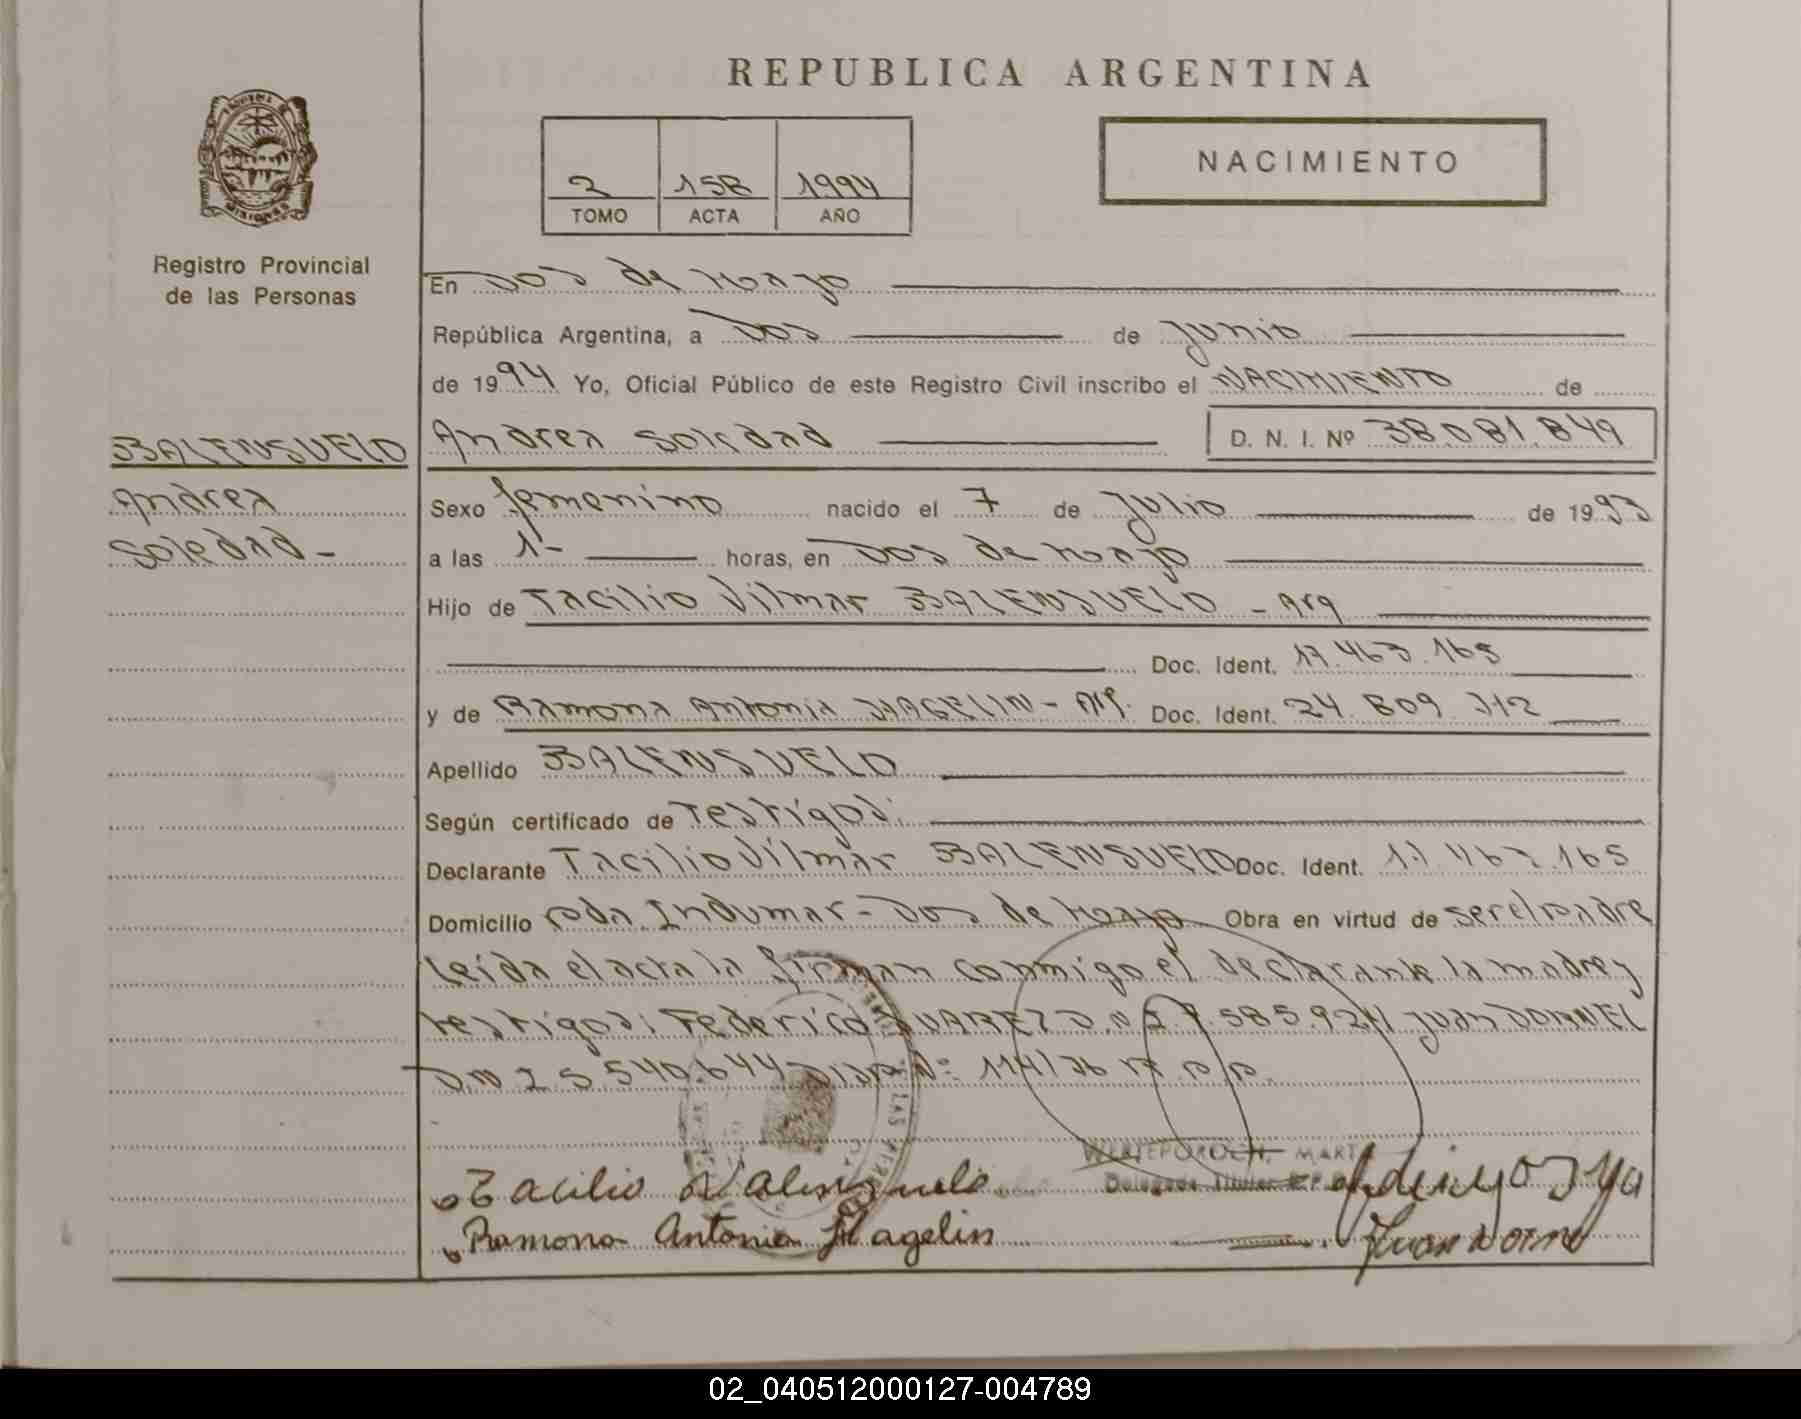 REPUBLICA ARGENTINA
NACIMIENTO
2 158 1994
TOMO ACTA AÑO
Registro Provincial
de las Personas
En Dos de Mayo
República Argentina, a Dos de Junio
de 1994 Yo, Oficial Público de este Registro Civil inscribo el NACIMIENTO de
BALENSUELO
Andrea Soledad D. N. I. Nº 38.081.849
Andrea
Soledad -
Sexo femenino nacido el 7 de Julio de 1993
a las 1- horas, en Dos de Mayo
Hijo de Tacilio Vilmar BALENSUELO - Arg
Doc. Ident. 17.463.165
y de Ramona Antonia HAGELIN - Arg. Doc. Ident. 24.809.312
Apellido BALENSUELO
Según certificado de Testigos:
Declarante Tacilio Vilmar BALENSUELO Doc. Ident. 17.463.165
Domicilio Indumar - Dos de Mayo Obra en virtud de ser el padre
Leida el acta la firman conmigo el declarante la madre y
testigos: Federico SUAREZ D.N.I 7.585.924 Juan DORNEL
DNI 5.540.644
Tacilio Valensuelo
Ramona Antonia Hagelin
Juan Dornel
02_040512000127-004789